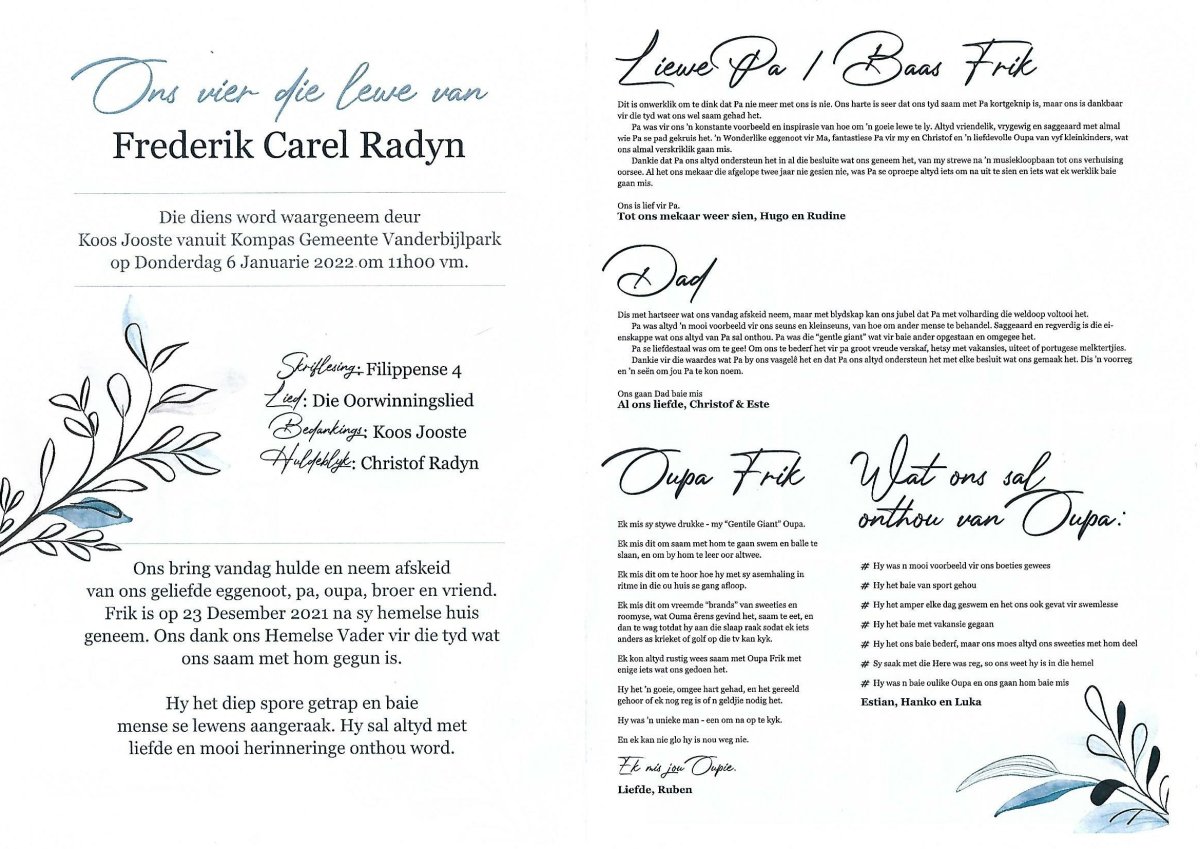 Ons vier die lewe van
Frederik Carel Radyn
Die diens word waargeneem deur
Koos Jooste vanuit Kompas Gemeente Vanderbijlpark
op Donderdag 6 Januarie 2022 om 11h00 vm.
Skriflesing: Filippense 4
Lied: Die Oorwinningslied
Bedankings: Koos Jooste
Huldeblyk: Christof Radyn
Ons bring vandag hulde en neem afskeid
van ons geliefde eggenoot, pa, oupa, broer en vriend.
Frik is op 23 Desember 2021 na sy hemelse huis
geneem. Ons dank ons Hemelse Vader vir die tyd wat
ons saam met hom gegun is.
Hy het diep spore getrap en baie
mense se lewens aangeraak. Hy sal altyd met
liefde en mooi herinneringe onthou word.
Liewe Pa / Baas Frik
Dit is onwerklik om te dink dat Pa nie meer met ons is nie. Ons harte is seer dat ons tyd saam met Pa kortgeknip is, maar ons is dankbaar
vir die tyd wat ons wel saam gehad het.
Pa was vir ons 'n konstante voorbeeld en inspirasie van hoe om 'n goeie lewe te ly. Altyd vriendelik, vrygewig en saggeaard met almal
wie Pa se pad gekruis het. 'n Wonderlike eggenoot vir Ma, fantastiese Pa vir my en Christof en 'n liefdevolle Oupa van vyf kleinkinders, wat
ons almal verskriklik gaan mis.
Dankie dat Pa ons altyd ondersteun het in al die besluite wat ons geneem het, van my strewe na 'n musiekloopbaan tot ons verhuising
oorsee. Al het ons mekaar die afgelope twee jaar nie gesien nie, was Pa se oproepe altyd iets om na uit te sien en iets wat ek werklik baie
gaan mis.
Ons is lief vir Pa.
Tot ons mekaar weer sien, Hugo en Rudine
Dad
Dis met hartseer wat ons vandag afskeid neem, maar met blydskap kan ons jubel dat Pa met volharding die weldoop voltooi het.
Pa was altyd 'n mooi voorbeeld vir ons seuns en kleinseuns, van hoe om ander mense te behandel. Saggeaard en regverdig is die ei-
enskappe wat ons altyd van Pa sal onthou. Pa was die "gentle giant" wat vir baie ander opgestaan en omgegee het.
Pa se liefdestaal was om te gee! Om ons te bederf het vir pa groot vreude verskaf, hetsy met vakansies, uiteet of portugese melktertjies.
Dankie vir die waardes wat Pa by ons vasgelê het en dat Pa ons altyd ondersteun het met elke besluit wat ons gemaak het. Dis 'n voorreg
en 'n seën om jou Pa te kon noem.
Ons gaan Dad baie mis
Al ons liefde, Christof & Este
Oupa Frik
Ek mis sy stywe drukke - my "Gentile Giant" Oupa.
Ek mis dit om saam met hom te gaan swem en balle te
slaan, en om by hom te leer oor altwee.
Ek mis dit om te hoor hoe hy met sy asemhaling in
ritme in die ou huis se gang afloop.
Ek mis dit om vreemde "brands" van sweeties en
roomyse, wat Ouma êrens gevind het, saam te eet, en
dan te wag totdat hy aan die slaap raak sodat ek iets
anders as krieket of golf op die tv kan kyk.
Ek kon altyd rustig wees saam met Oupa Frik met
enige iets wat ons gedoen het.
Hy het 'n goeie, omgee hart gehad, en het gereeld
gehoor of ek nog reg is of n geldjie nodig het.
Hy was 'n unieke man - een om na op te kyk.
En ek kan nie glo hy is nou weg nie.
Ek mis jou Oupie.
Liefde, Ruben
Wat ons sal
onthou van Oupa:
# Hy was n mooi voorbeeld vir ons boeties gewees
# Hy het baie van sport gehou
# Hy het amper elke dag geswem en het ons ook gevat vir swemlesse
# Hy het baie met vakansie gegaan
# Hy het ons baie bederf, maar ons moes altyd ons sweeties met hom deel
# Sy saak met die Here was reg, so ons weet hy is in die hemel
# Hy was n baie oulike Oupa en ons gaan hom baie mis
Estian, Hanko en Luka